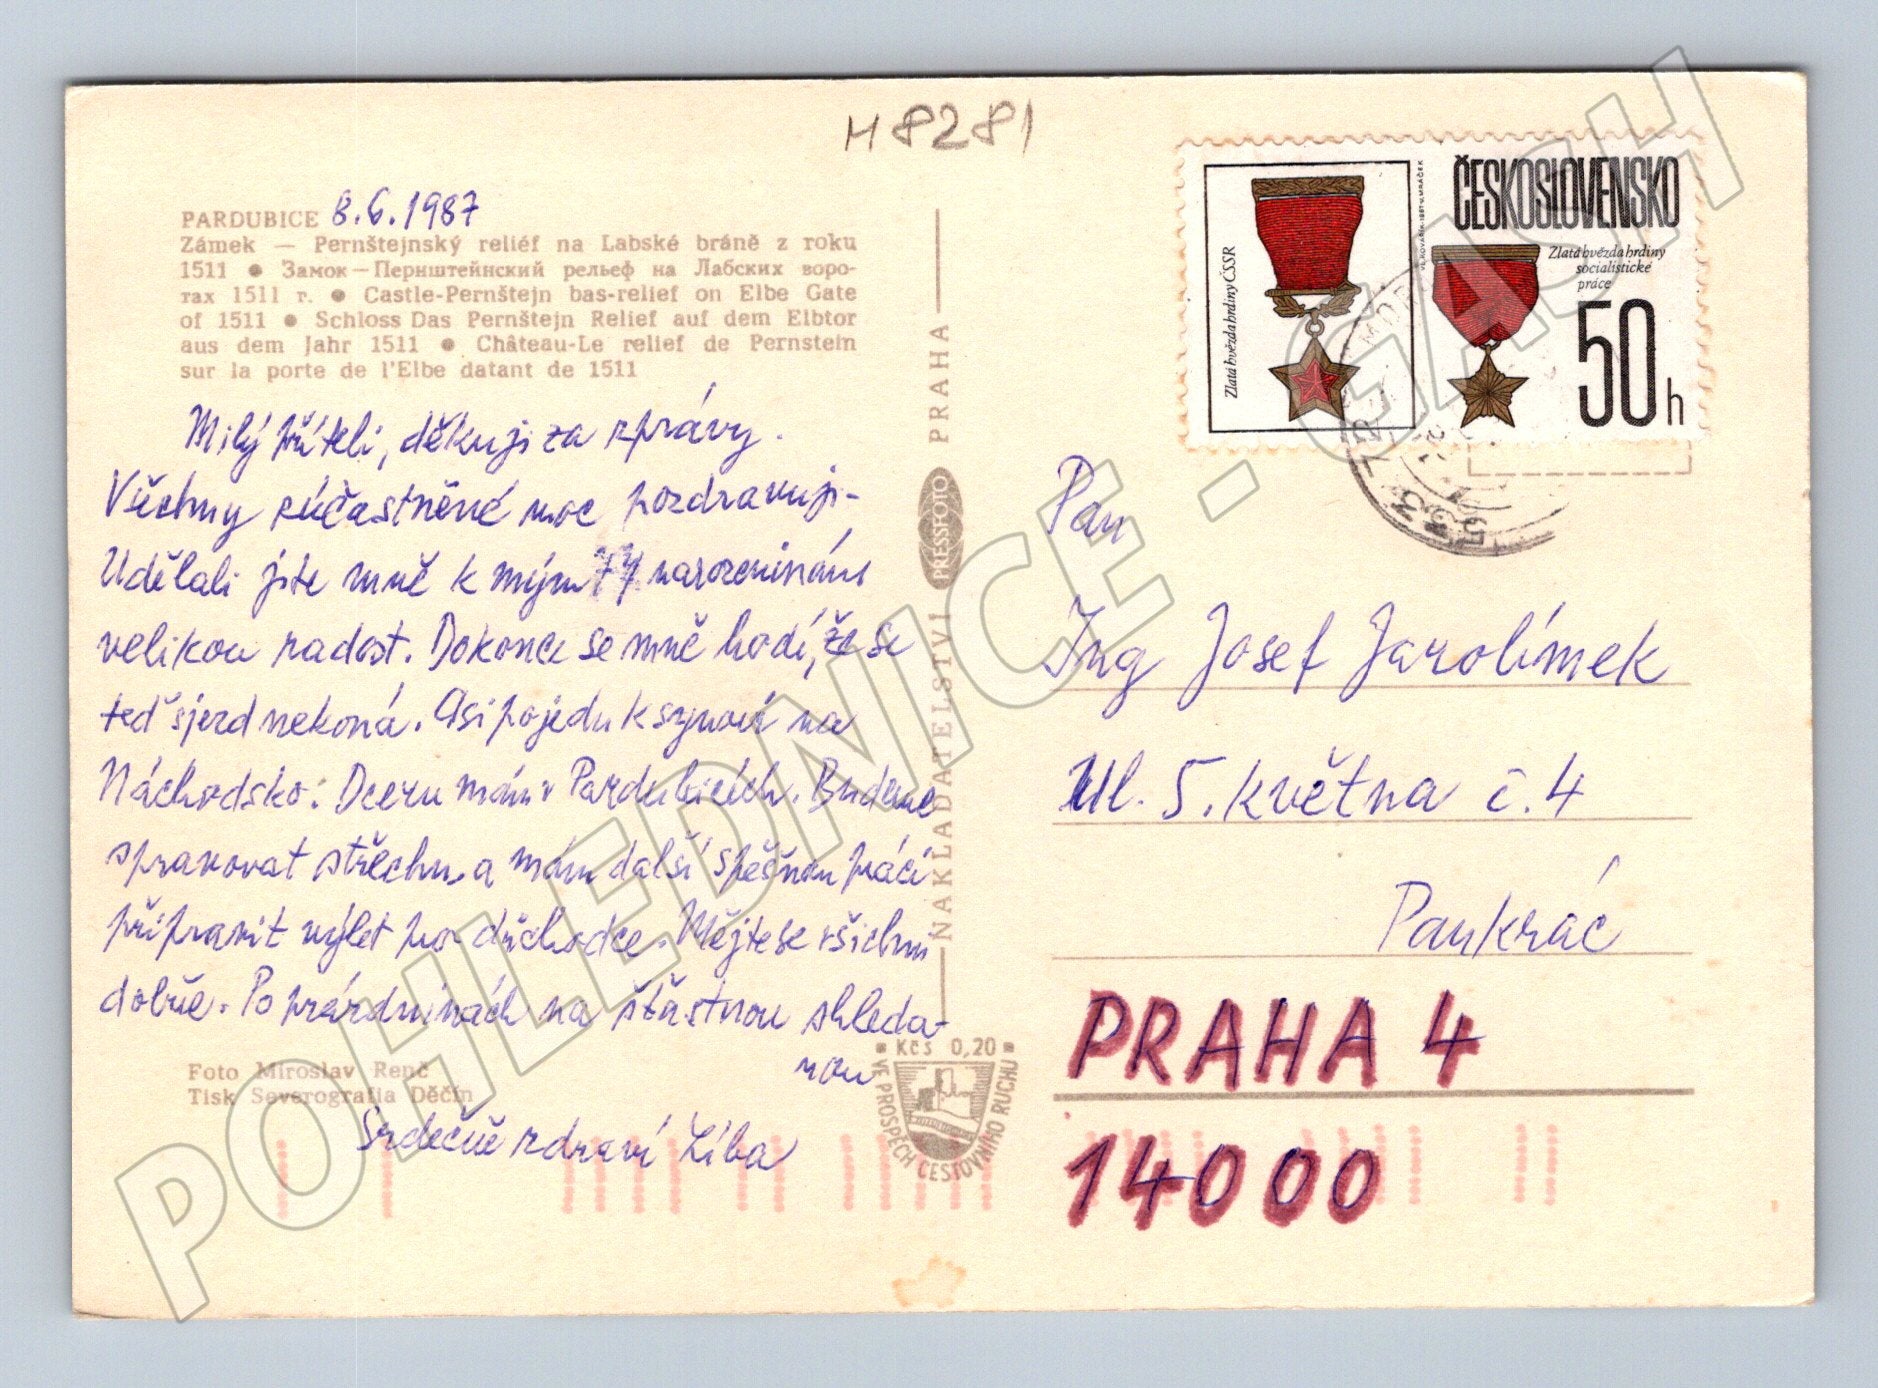 H 8281
PARDUBICE 8.6.1987
Zámek — Pernštejnský reliéf na Labské bráně z roku
1511 ● Замок — Пернштейнский рельеф на Лабских воро-
тах 1511 г. ● Castle-Pernštejn bas-relief on Elbe Gate
of 1511 ● Schloss Das Pernštejn Relief auf dem Elbtor
aus dem Jahr 1511 ● Château-Le relief de Pernstein
sur la porte de l'Elbe datant de 1511
Milý příteli, děkuji za zprávy.
Všechny zúčastněné moc pozdravuji-
Udělali jste mně k mým 77 narozeninám
velikou radost. Dokonce se mně hodí, že se
teď sjezd nekoná. Asi pojedu k synovi na
Náchodsko. Dceru mám v Pardubicích. Budeme
spravovat střechu a mám další spěšnou práci
připravit výlet pro důchodce. Mějte se všichni
dobře. Po prázdninách na šťastnou shleda-
nou
Srdečně zdraví Liba
Foto Miroslav Renč
Tisk Severografia Děčín
NAKLADATELSTVÍ PRESSFOTO PRAHA
Kčs 0,20
VE PROSPĚCH CESTOVNÍHO RUCHU
ČESKOSLOVENSKO
Zlatá hvězda hrdiny
socialistické
práce
50 h
Zlatá hvězda hrdiny ČSSR
Pan
Ing Josef Jarolímek
Ul. 5. května č. 4
Pankrác
PRAHA 4
14000
POHLEDNICE - GASH